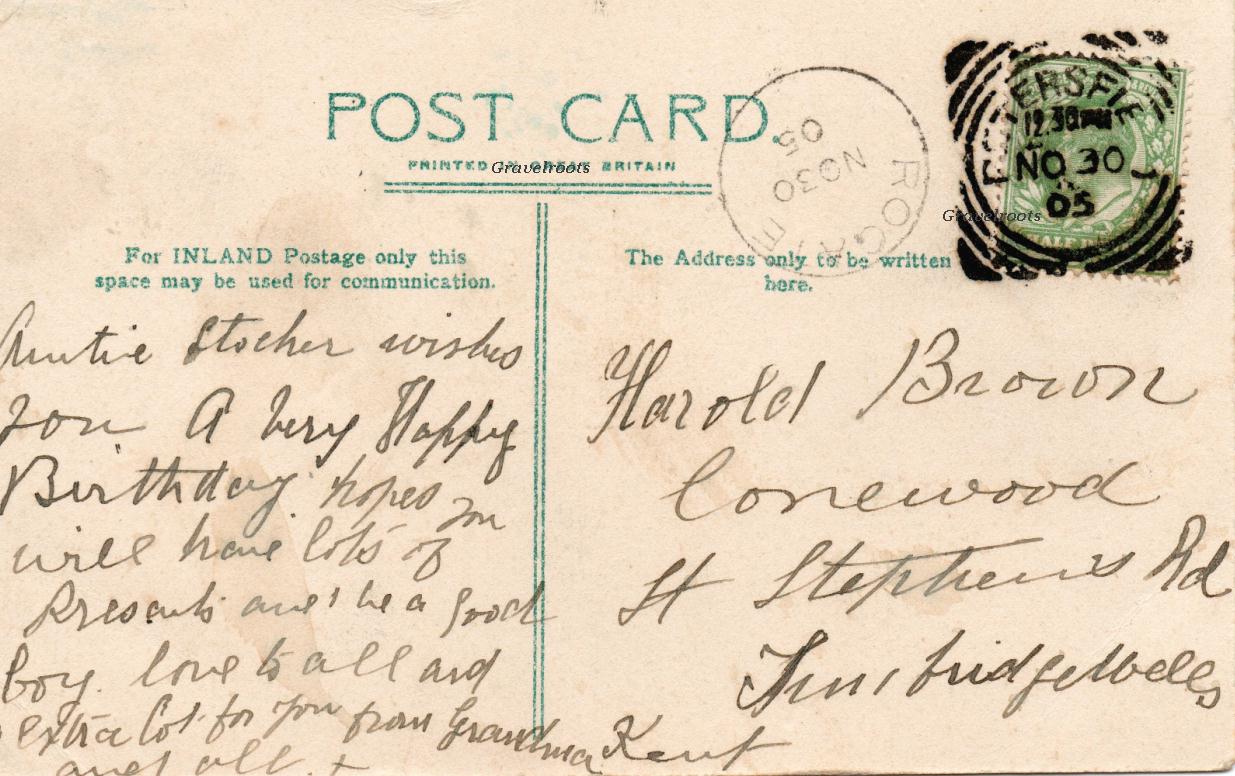 POST CARD.
PRINTED IN GREAT BRITAIN
Gravelroots
ROGATE
NO 30
05
PETERSFIELD
12.30PM
NO 30
05
Gravelroots
HALF
For INLAND Postage only this
space may be used for communication.
The Address only to be written
here.
Auntie Stocher wishes
you A Very Happy
Birthday hopes you
will have lots of
Presents and be a good
boy. love to all and
extra lot for you from Grandma
and all. +
Harold Brown
Conewood
St Stephens Rd
Tunbridge Wells
Kent